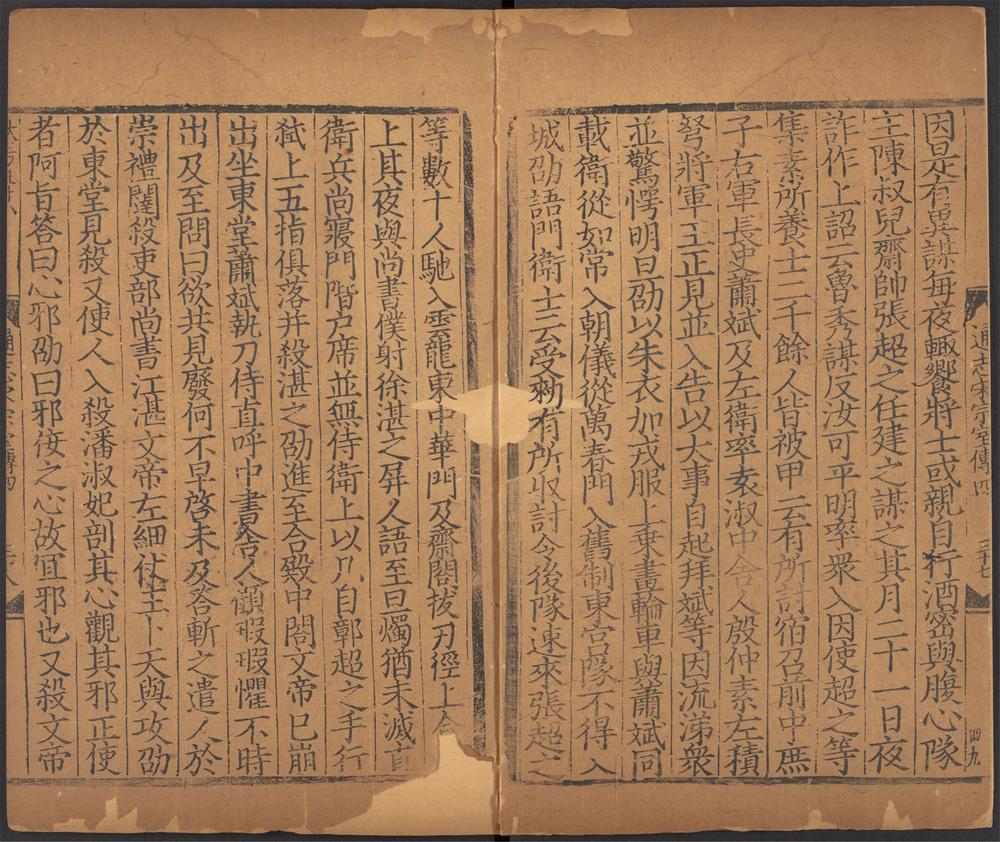 通志宋宗室傳四
四九
因是有異謀每夜輒饗將士或親自行酒密與腹心隊
主陳叔兒齋帥張超之任建之謀之其月二十一日夜
詐作上詔云魯秀謀反汝可平明率衆入因使超之等
集素所養士二千餘人皆被甲云有所討宿召前中庶
子右軍長史蕭斌及左衛率袁淑中舍人殷仲素左積
弩將軍王正見並入告以大事自起拜斌等因流涕衆
並驚愕明旦劭以朱衣加戎服上乗畫輪車與蕭斌同
載衛從如常入朝儀從萬春門入舊制東宫隊不得入
城劭語門衛士云受勑有所收討令後隊速來張超之
等數十人馳入雲龍東中華門及齋閤拔刃徑上合
上其夜與尚書僕射徐湛之屏人語至旦燭猶未滅直
衛兵尚寢門階户席並無侍衛上以几自鄣超之手行
弑上五指俱落并殺湛之劭進至合殿中閤文帝已崩
出坐東堂蕭斌執刀侍直呼中書舍人顧嘏嘏懼不時
出及至問曰欲共見廢何不早啓未及答斬之遣人於
崇禮闥殺吏部尚書江湛文帝左細仗主卜天與攻劭
於東堂見殺又使人入殺潘淑妃剖其心觀其邪正使
者阿旨答曰心邪劭曰邪佞之心故宜邪也又殺文帝